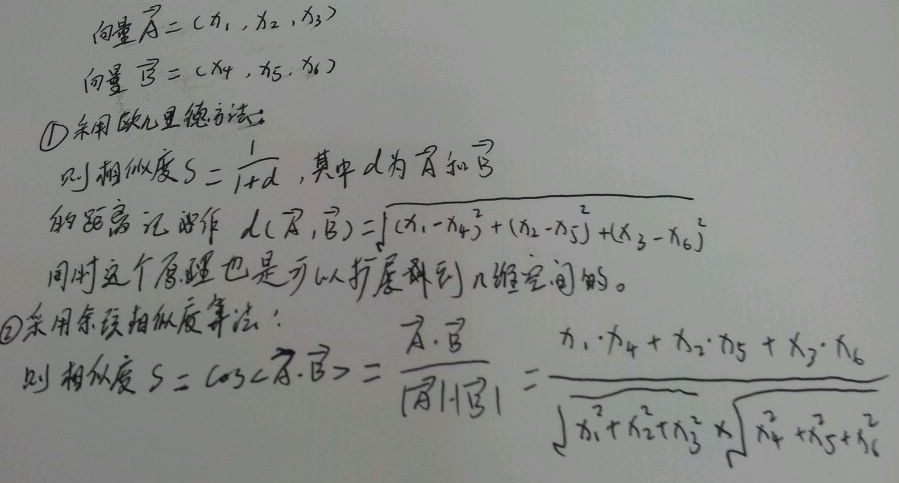 向量 A⃗ = (x₁, x₂, x₃)
向量 B⃗ = (x₄, x₅, x₆)
①采用欧几里德方法:
则相似度S = 1/(1+d) ,其中d为 A⃗ 和 B⃗
的距离记作 d(A⃗, B⃗) = √((x₁-x₄)² + (x₂-x₅)² + (x₃-x₆)²)
同时这个原理也是可以扩展到n维空间的。
②采用余弦相似度算法:
则相似度S = cos<A⃗·B⃗> = (A⃗·B⃗)/(|A⃗|·|B⃗|) = (x₁·x₄ + x₂·x₅ + x₃·x₆)/(√(x₁²+x₂²+x₃²) × √(x₄²+x₅²+x₆²))